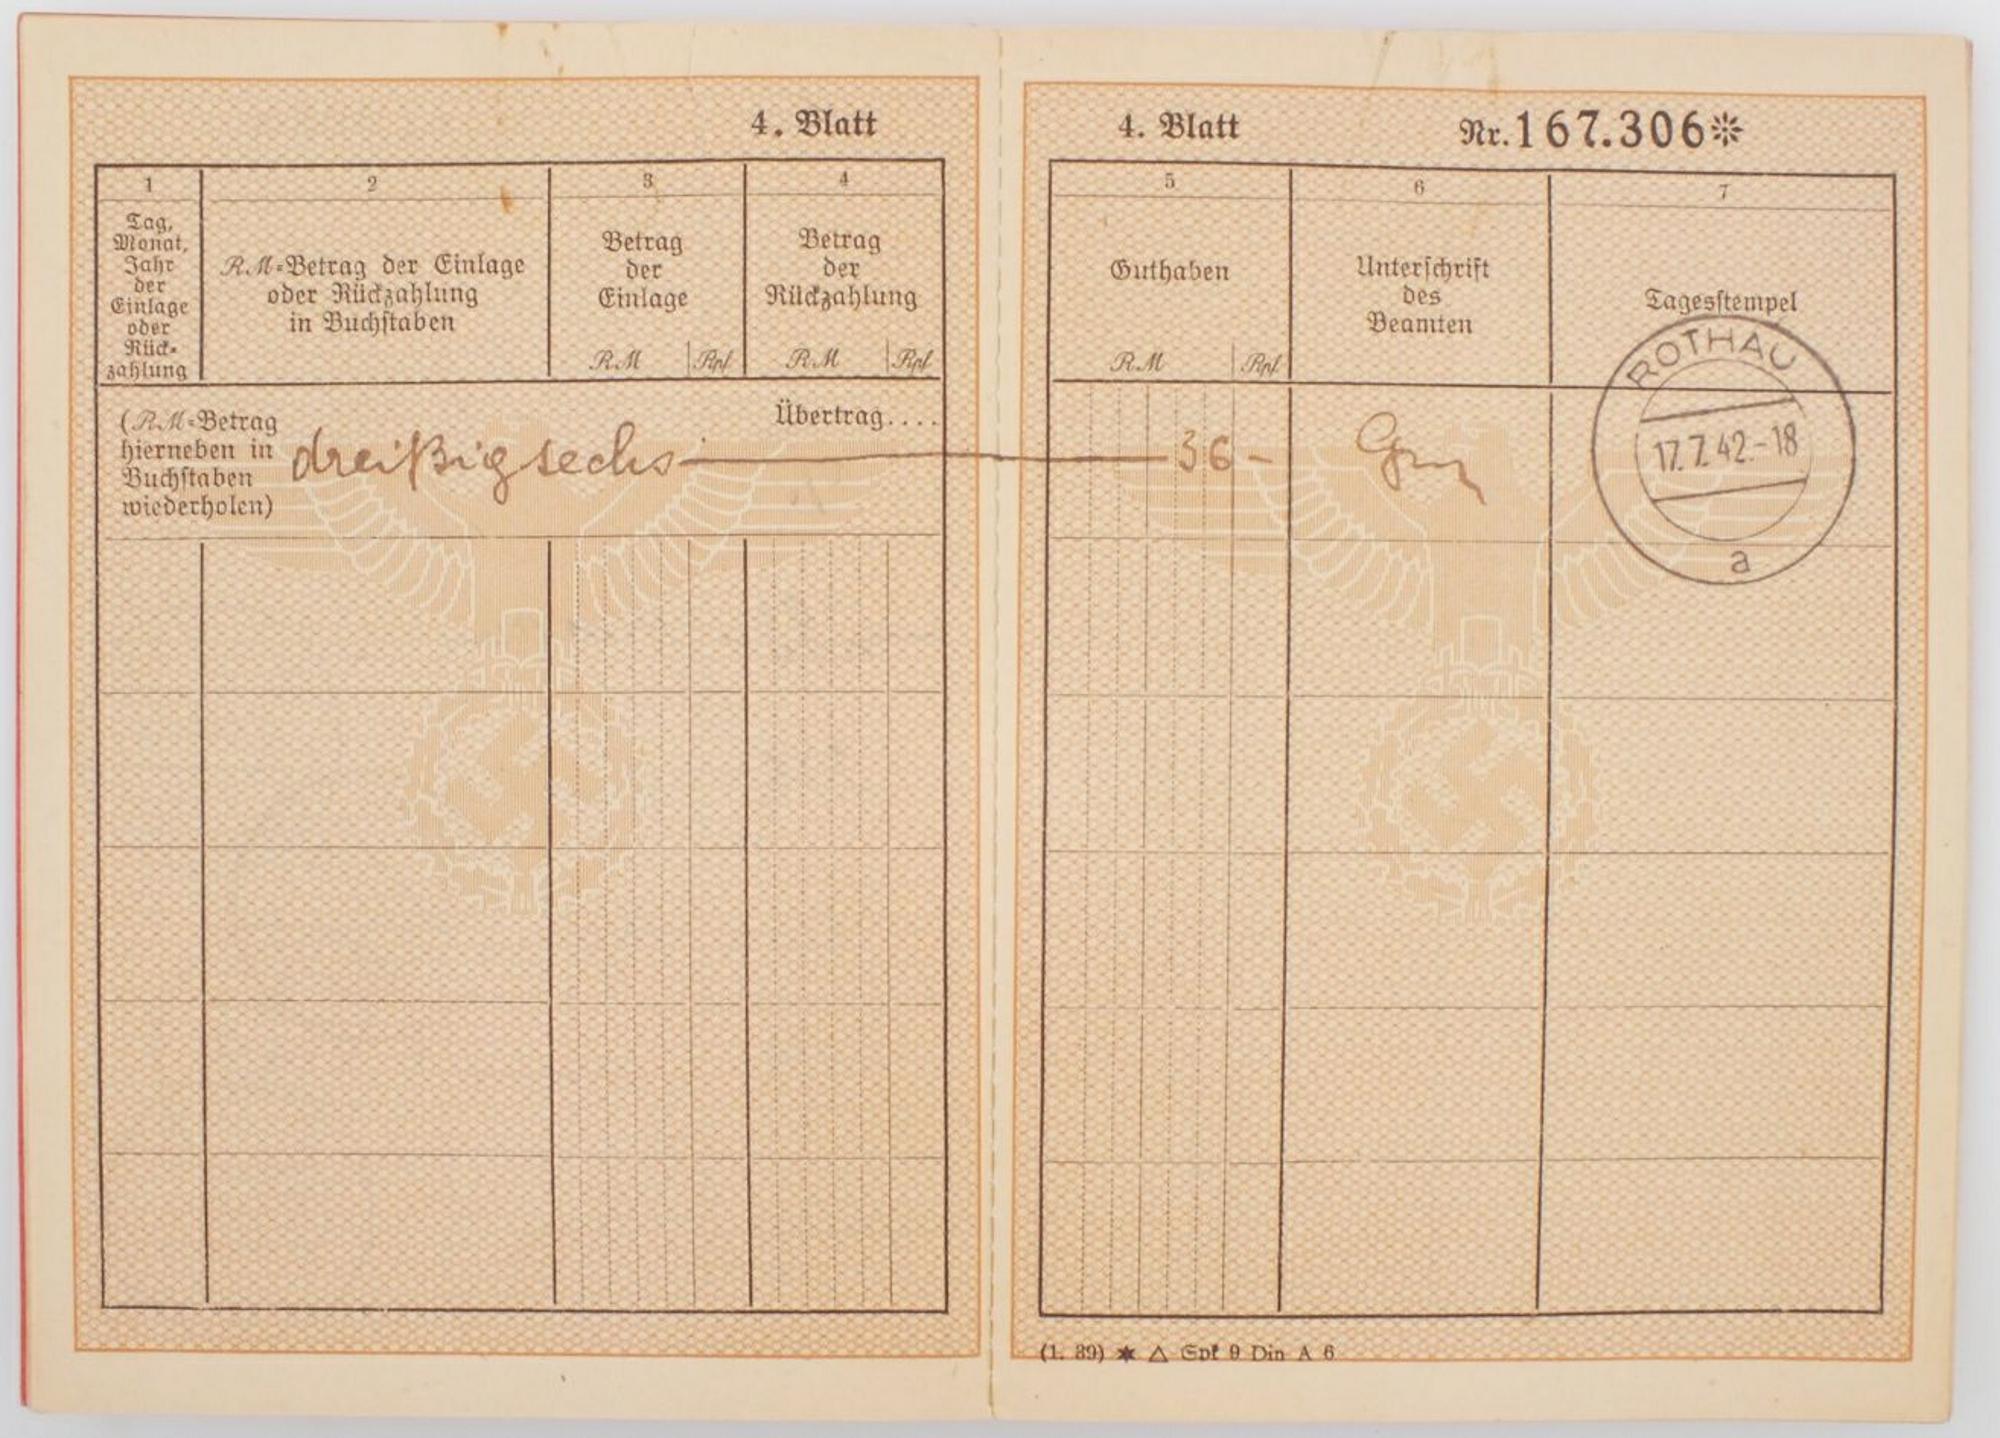 4. Blatt
1 2 3 4
Tag,
Monat,
Jahr
der
Einlage
oder
Rück-
zahlung
RM-Betrag der Einlage
oder Rückzahlung
in Buchstaben
Betrag
der
Einlage
RM Rpf
Betrag
der
Rückzahlung
RM Rpf
(RM-Betrag
hierneben in
Buchstaben
wiederholen)
dreißigsechs
Übertrag....
4. Blatt Nr. 167.306*
5 6 7
Guthaben
RM Rpf
Unterschrift
des
Beamten
Tagesstempel
36 -
ROTHAU
17.7.42.-18
a
(1. 39) ✶ △ Spk 9 Din A 6